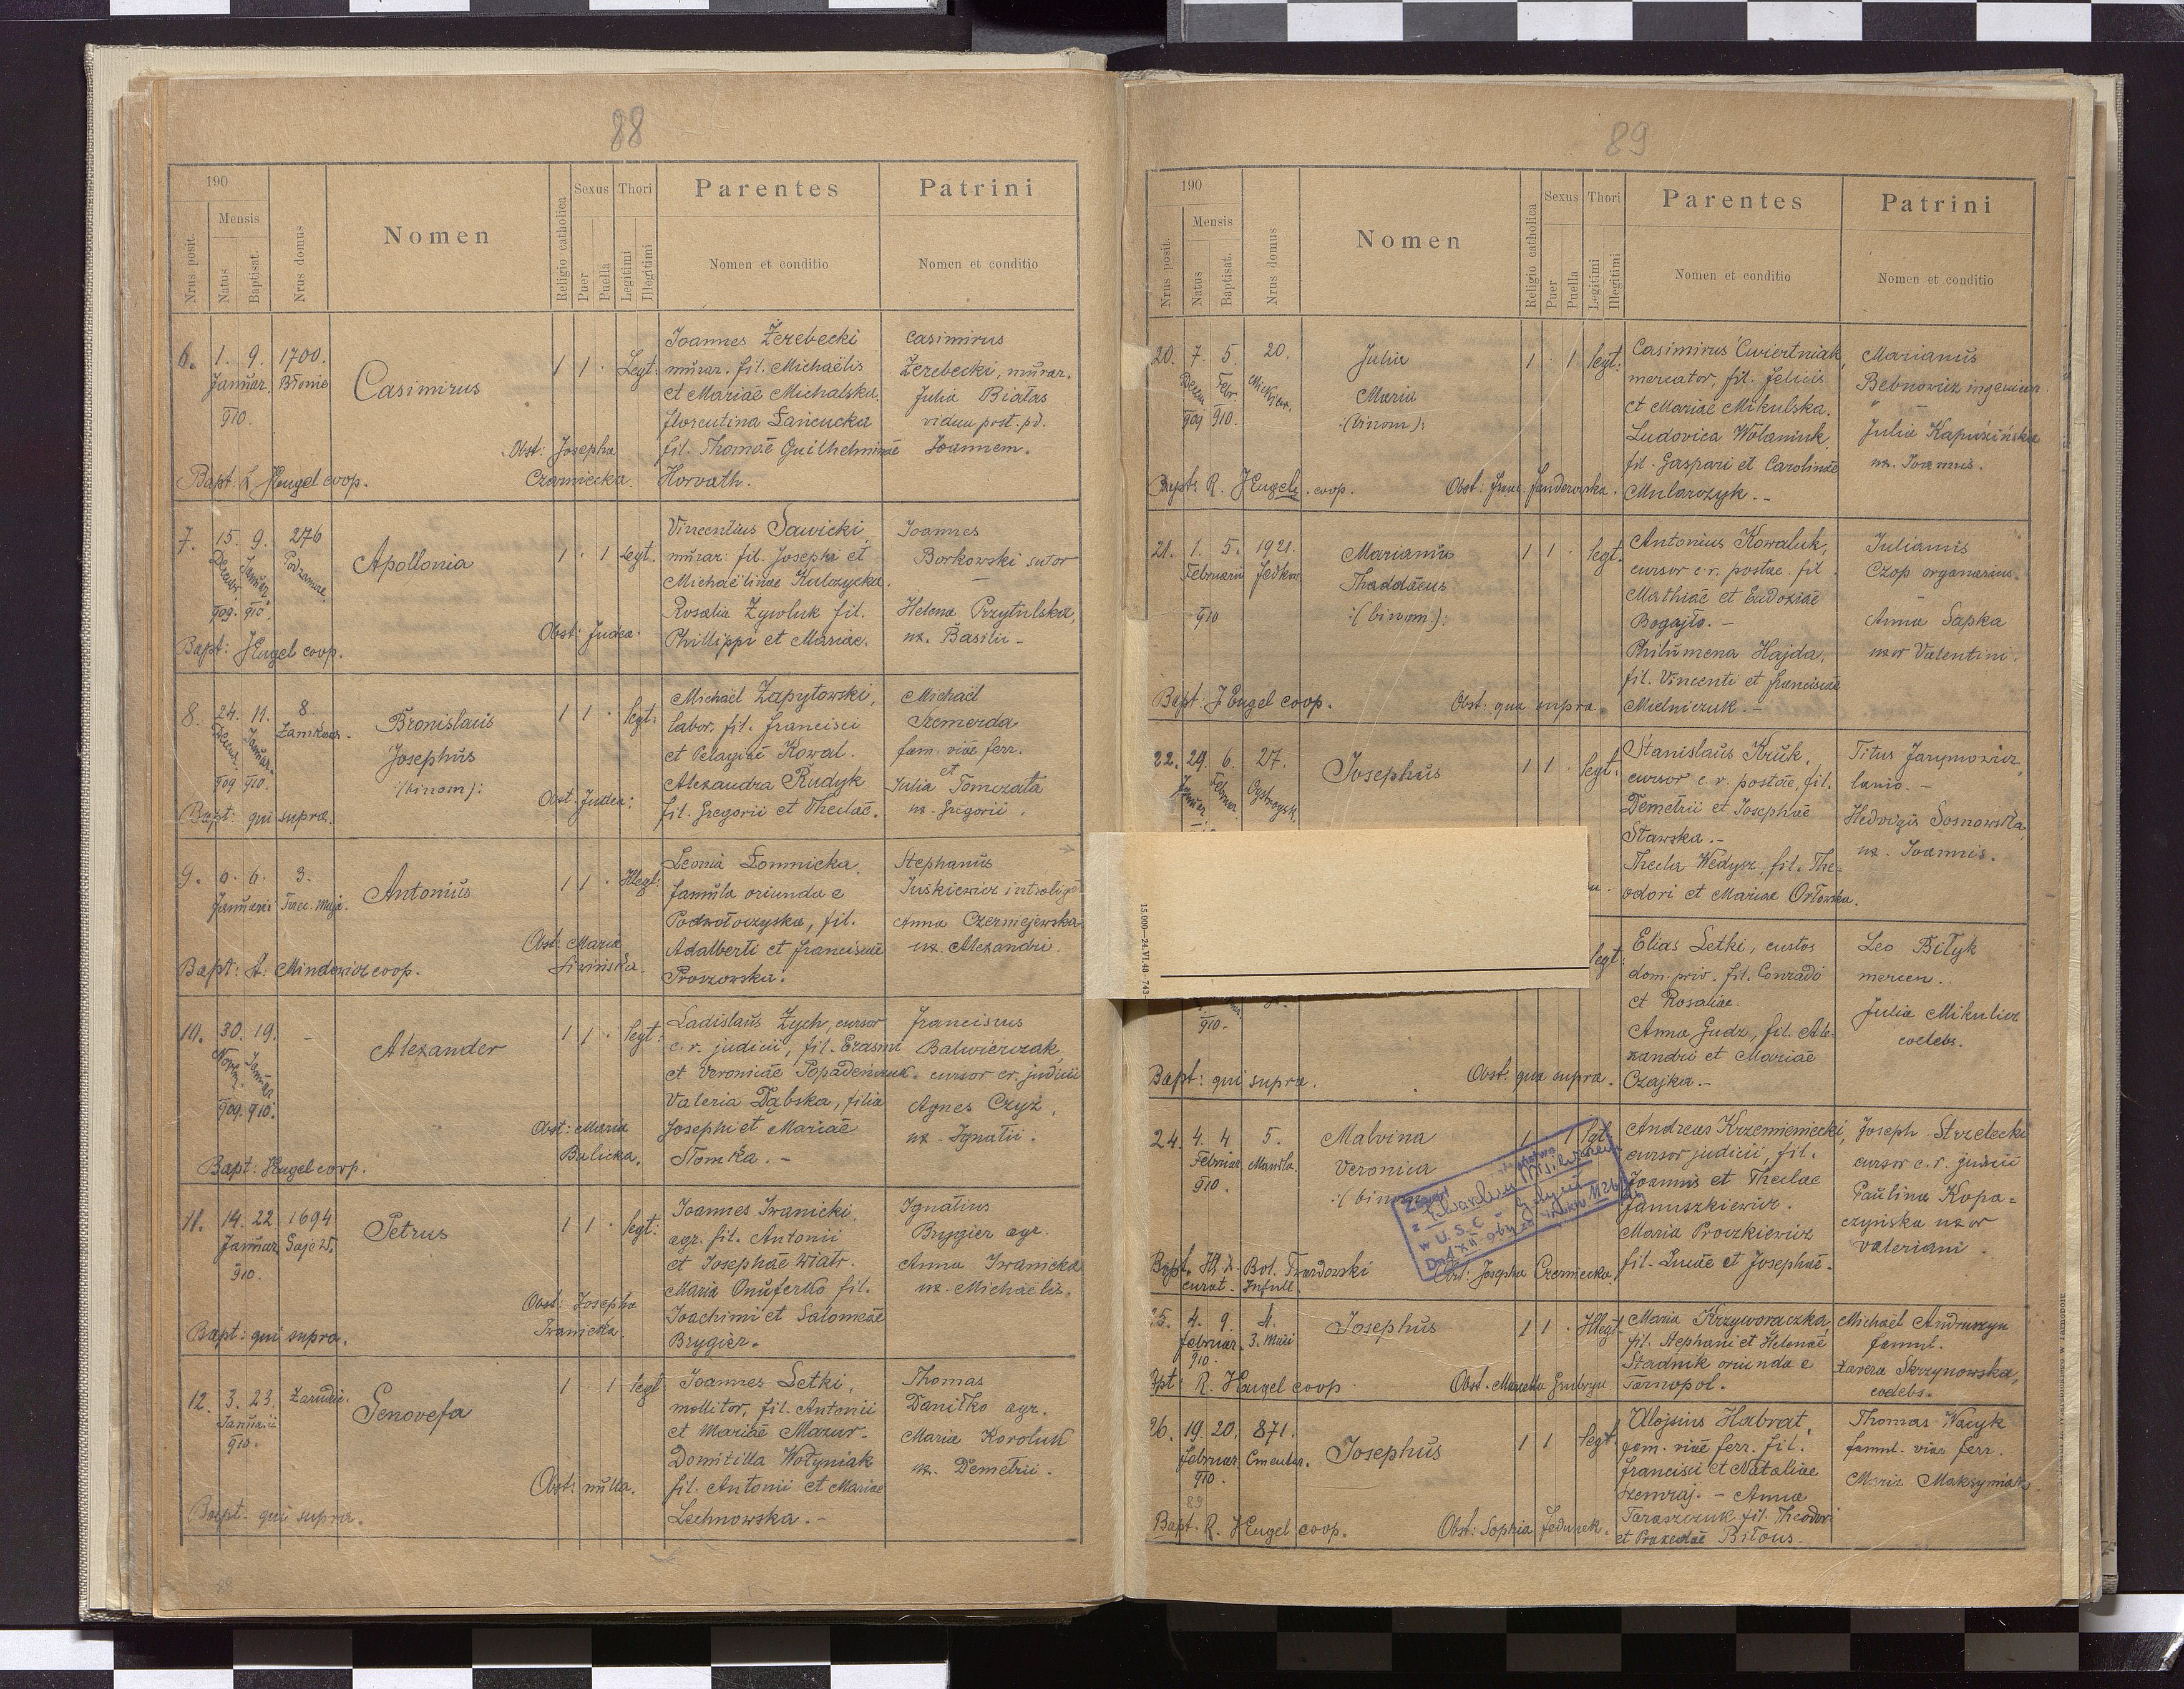 88
190
Nrus posit.
Mensis
Natus
Baptisat.
Nrus domus
Nomen
Religio catholica
Sexus
Puer
Puella
Thori
Legitimi
Illegitimi
Parentes
Nomen et conditio
Patrini
Nomen et conditio
6. 1. 9. 1700.
Januar. Błonie
910.
Casimirus
1 1 . Legt:
Joannes Żerebecki
murar. fil. Michaëlis
et Mariae Michalska.
Florentina Łańcucka
fil. Thomae Guilhelminae
Horvath.
Casimirus
Żerebecki, murar.
Julia Białas
vidua post. pd.
Joannem.
Obst: Josepha
Czarniecka.
Bapt. Ł. Hugel coop.
7. 15. 9. 276
Decembr Januar. Podzamcze
909. 910.
Apollonia
1 . 1 Legt.
Vincentius Sawicki,
murar. fil. Josephi et
Michaëlinae Kulczycka.
Rosalia Żywluk fil.
Phillippi et Mariae.
Joannes
Borkowski sutor
Helena Przytulska,
ux. Basilii -
Obst: Judea.
Bapt: Hugel coop.
8. 24. 11. 8
Decem. Januar. Zamkow.
909 910.
Bronislaus
Josephus
:(binom):
1 1 . legt:
Michaël Zapytowski,
labor. fil. Francisci
et Pelagiae Kowal.
Alexandra Rudyk
fil. Gregorii et Theclae.
Michaël
Szemerda
fam. viae ferr.
et
Julia Tomczata
ux. Gregorii.
Obst: Judea:
Bapt: qui supra.
9. 6. 6. 3.
Januarii Trzec. Maja.
Antonius
1 1 . Illegt:
Leonia Łomnicka
famula oriunda e
Podwołoczyska, fil.
Adalberti et Franciscae
Proszowska.
Stephanus
Juskiewicz introligat
Anna Czerniejewska
ux. Alexandri.
Obst. Maria
Siwińska.
Bapt: A. Mindowicz coop.
10. 30. 19. -
Novbr. Januar
909. 910.
Alexander
1 1 . legt:
Ladislaus Zych, cursor
c. r. judicii, fil. Erasmi
et Veronicae Popadeńczuk.
Valeria Dąbska, filia
Josephi et Mariae
Słomka. -
Franciscus
Balwierczak
cursor cr. judicii
Agnes Czyż,
ux. Ignatii.
Obst: Maria
Bulicka.
Bapt: Hugel coop.
11. 14. 22 1694
Januar Gaje W.
910.
Petrus
1 1 . legt:
Joannes Iwanicki
agr. fil. Antonii
et Josephae Wiatr.
Maria Onuferko fil.
Joachimi et Salomeae
Brygier.
Ignatius
Brygier agr.
Anna Iwanicka
ux. Michaëlis.
Obst: Josepha
Iwanicka.
Bapt: qui supra.
12. 3. 23. Zarudzie.
Januarii
910.
Genovefa
1 . 1 legt
Joannes Letki,
mollitor, fil. Antonii
et Mariae Mazur.
Domitilla Wołyniak
fil. Antonii et Mariae
Lechnowska. -
Thomas
Daniłko agr.
Maria Koroluk
ux. Demetrii.
Obst: nulla.
Bapt. qui supra.
89
190
Nrus posit.
Mensis
Natus
Baptisat.
Nrus domus
Nomen
Religio catholica
Sexus
Puer
Puella
Thori
Legitimi
Illegitimi
Parentes
Nomen et conditio
Patrini
Nomen et conditio
20. 7. 5. 20.
Decem Febr. Mickiew.
909 910.
Julia
Maria
:(binom):
1 . 1 legt:
Casimirus Cwiertniak
mercator, fil. Felicis
et Mariae Mikulska.
Ludovica Wolaniuk
fil. Gaspari et Carolinae
Mularczyk. -
Marianus
Bebnowicz ingenieur.
Julia Kapuścińska
ux. Joannis.
Bapt: R. Hugel. coop.
21. 1. 5. 1921.
Februarii
910
Marianus
Thaddaeus
:(binom.):
1 1 . legt.
Antonius Kowaluk,
cursor c. r. postae. fil.
Mathiae et Eudoxiae
Bogajło. -
Philumena Hajda,
fil. Vincenti et Franciscae
Mielniczuk. -
Julianus
Czop organarius.
Anna Sapka
uxor Valentini.
Obst: qua supra.
Bapt. Hugel coop.
22. 29. 6. 27.
Josephus
1 1 . legt:
Stanislaus Kruk,
cursor c. r. postae, fil.
Demetrii et Josephae
Stawska. -
Thecla Wedysz, fil. The-
odori et Mariae Orłowska.
Titus Jarymowicz
lanio. -
Hedvigis Sosnowska
ux. Joannis.
15.000—24.VI.48—743-
910.
legt:
Elias Letki, custos
dom. priv. fil. Conradi
et Rosaliae.
Anna Gudz, fil. Ale-
xandri et Mariae
Czajka. -
Leo Biłyk
mercen.
Julia Mikulicz
coelebs.
Bapt: qui supra.
Obst: qua supra.
24. 4. 4 5.
Februar.
910.
Malvina
Veronica
:( binom
1 . 1 lgt
Andreas Krzemieniecki,
cursor judicii, fil.
Joannis et Theclae
Januszkiewicz.
Maria Proczkiewicz
fil. Lucae et Josephae.
Joseph Strzelecki
cursor c. r. judicii
Paulina Kopa=
czyńska uxor
Valeriani.
w U. S. C.
Bapt. Bol. Twardowski
curat. Infull.
Obst: Josepha Czerniecka.
25. 4. 9. 4.
Februar. 3. Maii
910.
Josephus
1 1 . Illegt.
Maria Krzyworaczka
fil. Stephani et Helenae
Stadnik oriunda e
Tarnopol.
Michaël Andruszyn
famul.
Xavera Skrzynowska,
coelebs.
Bpt: R. Hugel coop
26. 19. 20. 871.
Februar Cmentar.
910.
Josephus
1 1 legt.
Alojsius Habrat,
fam. viae ferr. fil.
Francisci et Nataliae
Szemraj. - Anna
Taraszczuk fil. Theodori
et Praxedae Biłous.
Thomas Wacyk
famul. viae ferr.
Maria Maksymiak
89
Bapt. R. Hugel coop.
Obst: Sophia Fedunek.